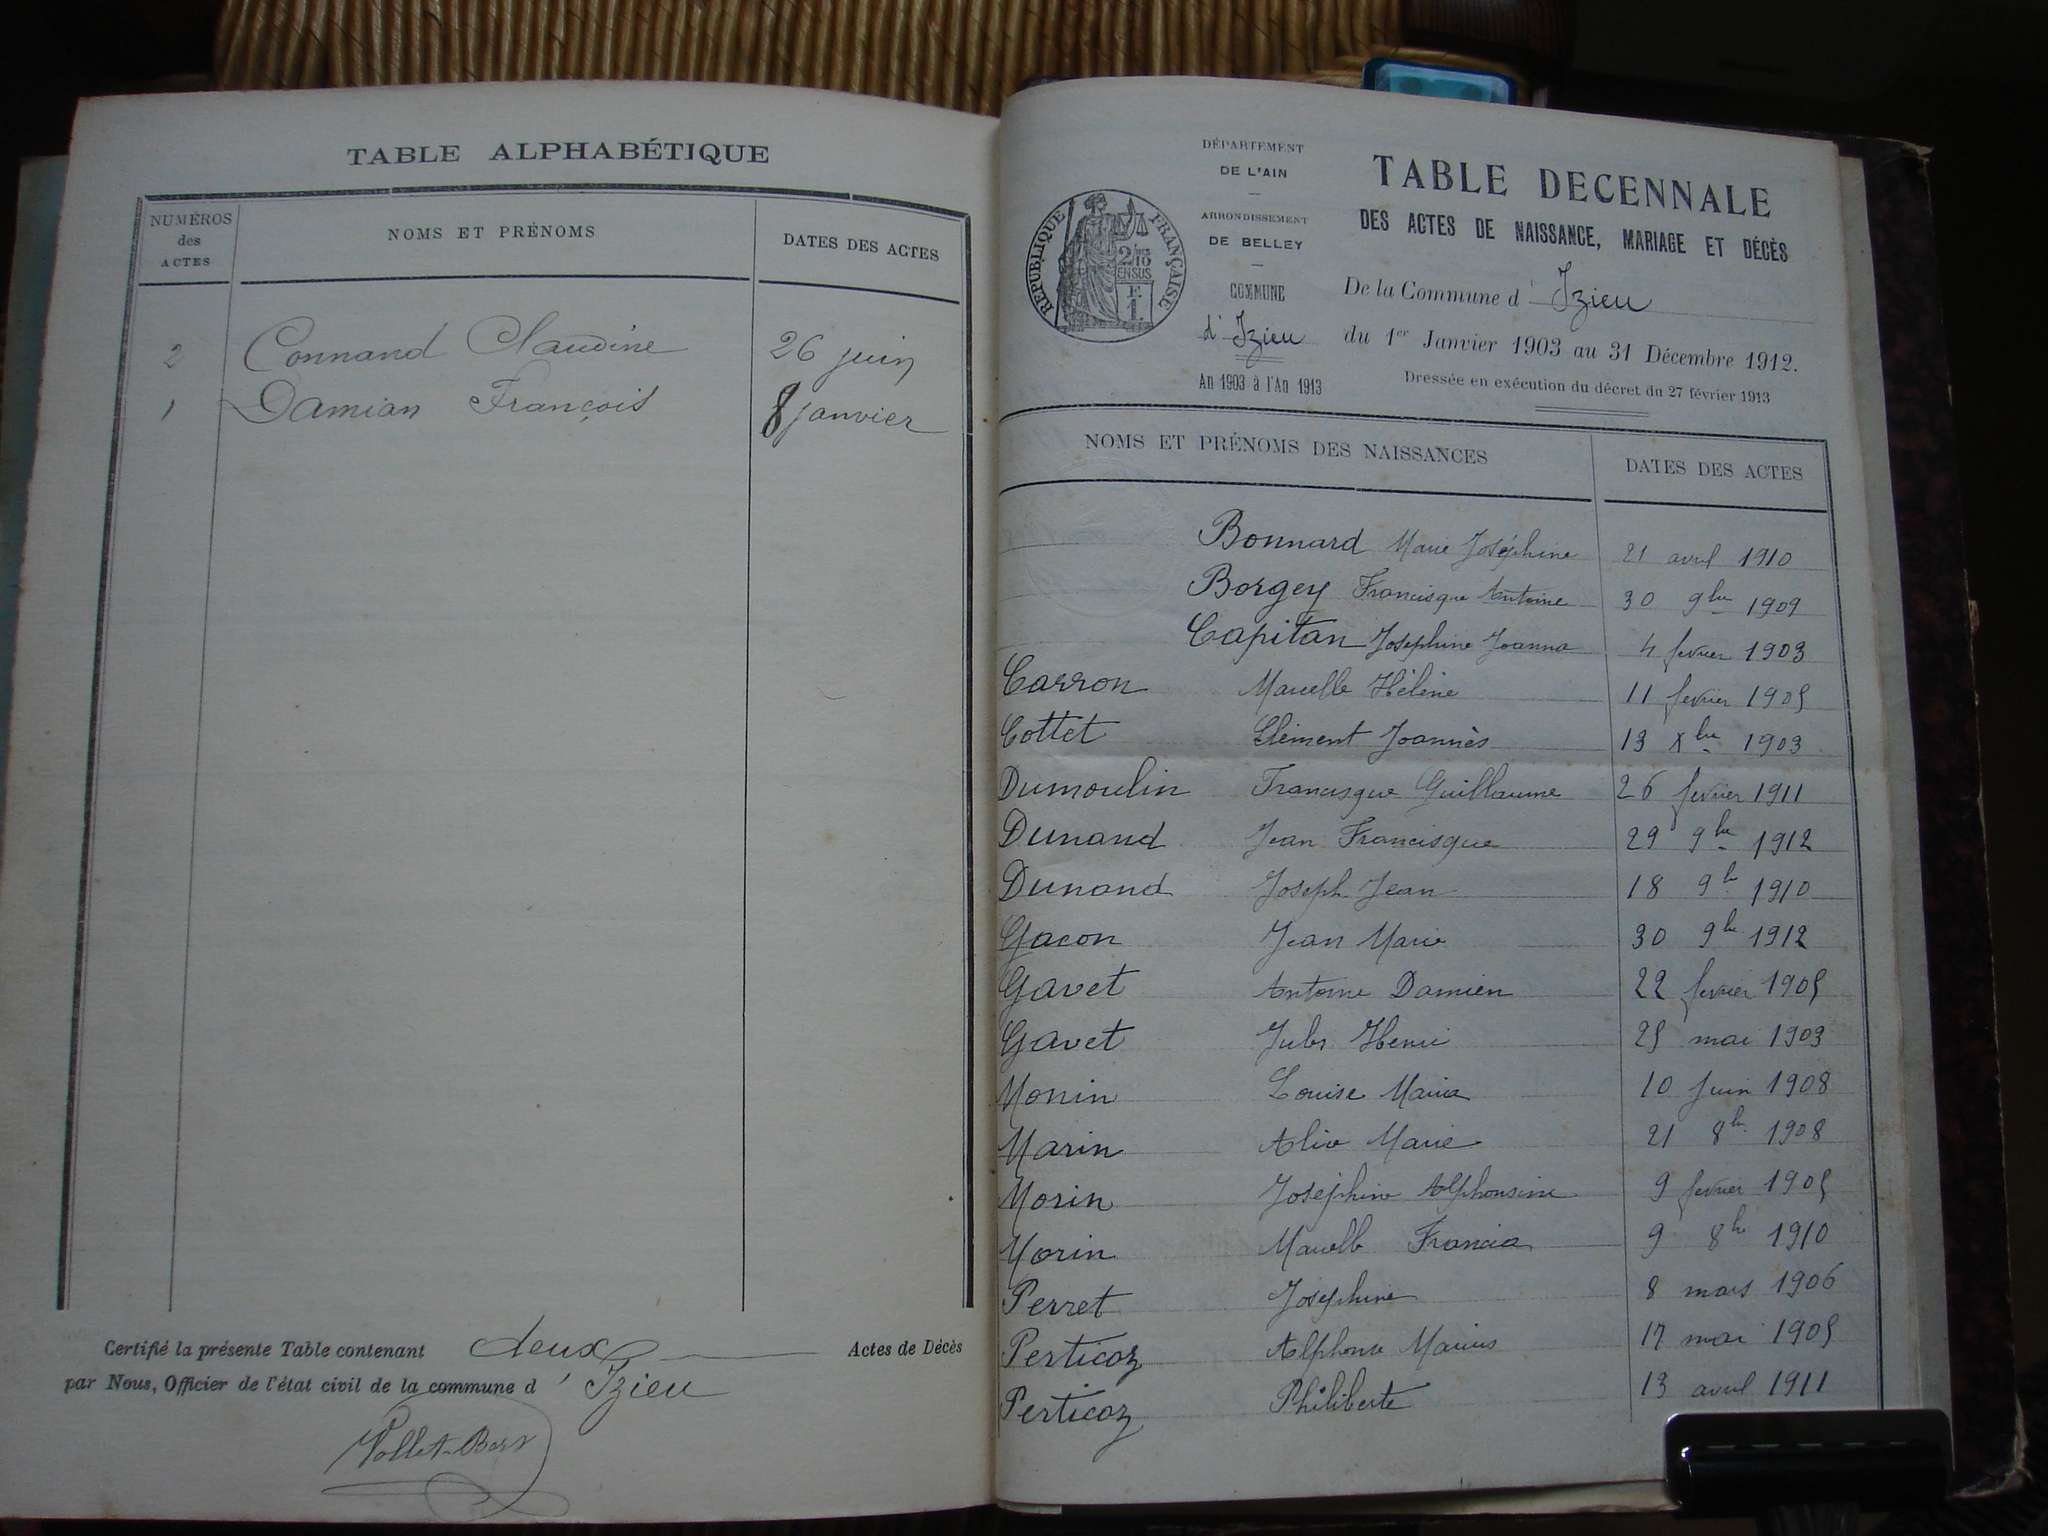 TABLE ALPHABÉTIQUE
NUMÉROS des ACTES
NOMS ET PRÉNOMS
DATES DES ACTES
2 Connand Claudine 26 juin
1 Damian François 8 janvier
Certifié la présente Table contenant deux Actes de Décès
par Nous, Officier de l'état civil de la commune d'Izieu
DÉPARTEMENT
DE L'AIN
ARRONDISSEMENT
DE BELLEY
COMMUNE
d'Izieu
An 1903 à l'An 1913
RÉPUBLIQUE FRANÇAISE
TABLE DECENNALE
DES ACTES DE NAISSANCE, MARIAGE ET DÉCÈS
De la Commune d'Izieu
du 1er Janvier 1903 au 31 Décembre 1912.
Dressée en exécution du décret du 27 février 1913
NOMS ET PRÉNOMS DES NAISSANCES
DATES DES ACTES
Bonnard Marie Joséphine 21 avril 1910
Borgey Francisque Antoine 30 9bre 1909
Capitan Josephine Joanna 4 fevrier 1903
Carron Marcelle Hélène 11 fevrier 1905
Cottet Clément Joannès 13 Xbre 1903
Dumoulin Francisque Guillaume 26 fevrier 1911
Dunand Jean Francisque 29 9bre 1912
Dunand Joseph Jean 18 9bre 1910
Gacon Jean Marie 30 9bre 1912
Gavet Antoine Damien 22 fevrier 1905
Gavet Jules Henri 25 mai 1903
Monin Louise Maria 10 Juin 1908
Marin Marie 21 8bre 1908
Morin Joséphine Alphonsine 9 fevrier 1905
Morin Marcelle Francia 9 8bre 1910
Perret Josephine 8 mars 1906
Perticoz Alphonse Marius 17 mai 1905
Perticoz Philiberte 13 avril 1911